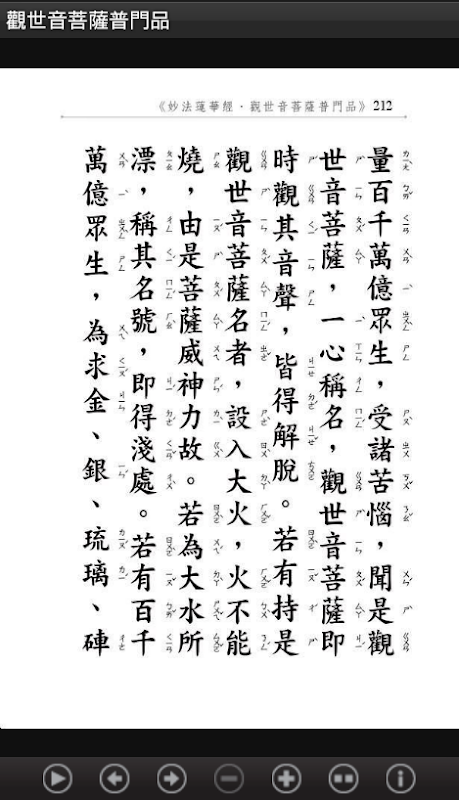 觀世音菩薩普門品
《妙法蓮華經．觀世音菩薩普門品》 212
量百千萬億眾生，受諸苦惱，聞是觀
世音菩薩，一心稱名，觀世音菩薩即
時觀其音聲，皆得解脫。若有持是
觀世音菩薩名者，設入大火，火不能
燒，由是菩薩威神力故。若為大水所
漂，稱其名號，即得淺處。若有百千
萬億眾生，為求金、銀、琉璃、硨